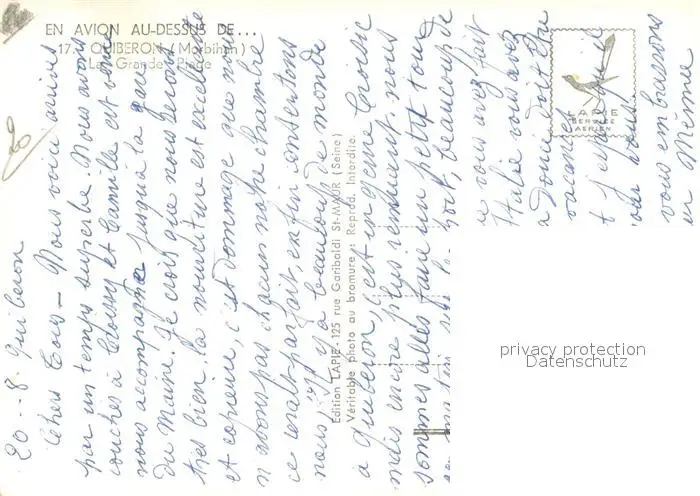 EN AVION AU-DESSUS DE...
17. - QUIBERON (Morbihan)
La Grande Plage
LAPIE
SERVICE
AERIEN
Edition LAPIE - 125 rue Garibaldi St-MAUR (Seine)
Véritable photo au bromure - Reprod. Interdite.
20 - 8. Quiberon
Chers Tous - Nous voici arrivés
par un temps superbe Nous avons
couchés à et Camille est venu
nous accompagné jusqu'à la gare
du Maine. Je crois que nous serons
très bien. la nourriture est excellente
et copieuse, c'est dommage que nous
n'avons pas chacun notre chambre
ce serait parfait, enfin contentons
nous il y a beaucoup de monde
a Quiberon, c'est un genre Croisic
mais encore plus remuant. nous
sommes allés faire un petit tour
soir, beaucoup de
vous avez fait
Italie vous avez
a donc doit être
vacances
t j'espère que
pour vous
vous embrassons
Mémé
privacy protection
Datenschutz